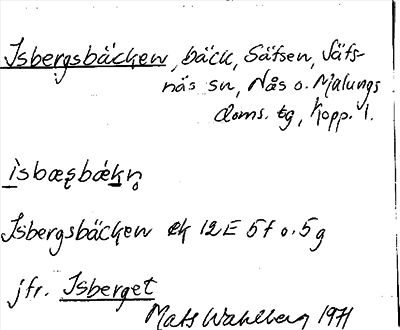 Isbergsbäcken, bäck, Säfsen, Säfs-
näs sn, Nås o. Malungs
doms. tg, Kopp. l.
ìsbæșbækn̥
Isbergsbäcken ek 12E 5f o. 5g
jfr. Isberget
Mats Wahlberg 1971